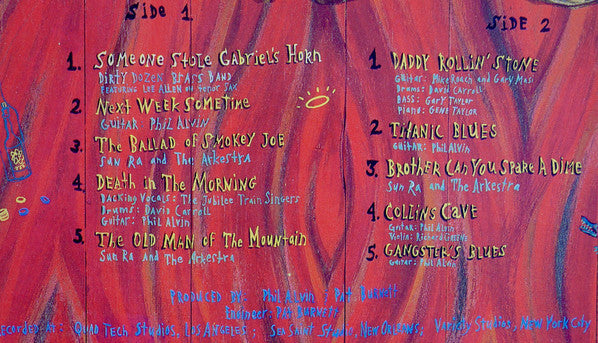 Side 1
1. Someone Stole Gabriel's Horn
Dirty Dozen Brass Band
Featuring Lee Allen on Tenor Sax
2. Next Week Sometime
Guitar: Phil Alvin
3. The Ballad of Smokey Joe
Sun Ra and The Arkestra
4. Death in The Morning
Backing Vocals: The Jubilee Train Singers
Drums: David Carroll
Guitar: Phil Alvin
5. The Old Man of The Mountain
Sun Ra and The Arkestra
Side 2
1. Daddy Rollin' Stone
Guitar: Mike Roach and Gary Masi
Drums: David Carroll
Bass: Gary Taylor
Piano: Gene Taylor
2 Titanic Blues
Guitar: Phil Alvin
3. Brother Can You Spare A Dime
Sun Ra and The Arkestra
4. Collins Cave
Guitar: Phil Alvin
Violin: Richard
5. Gangster's Blues
Guitar: Phil Alvin
Produced By: Phil Alvin; Pat Burnett
Engineer: Pat Burnett
ecorded At: Quad Tech Studios, Los Angeles; Sea Saint Studio, New Orleans; Variety Studios, New York City